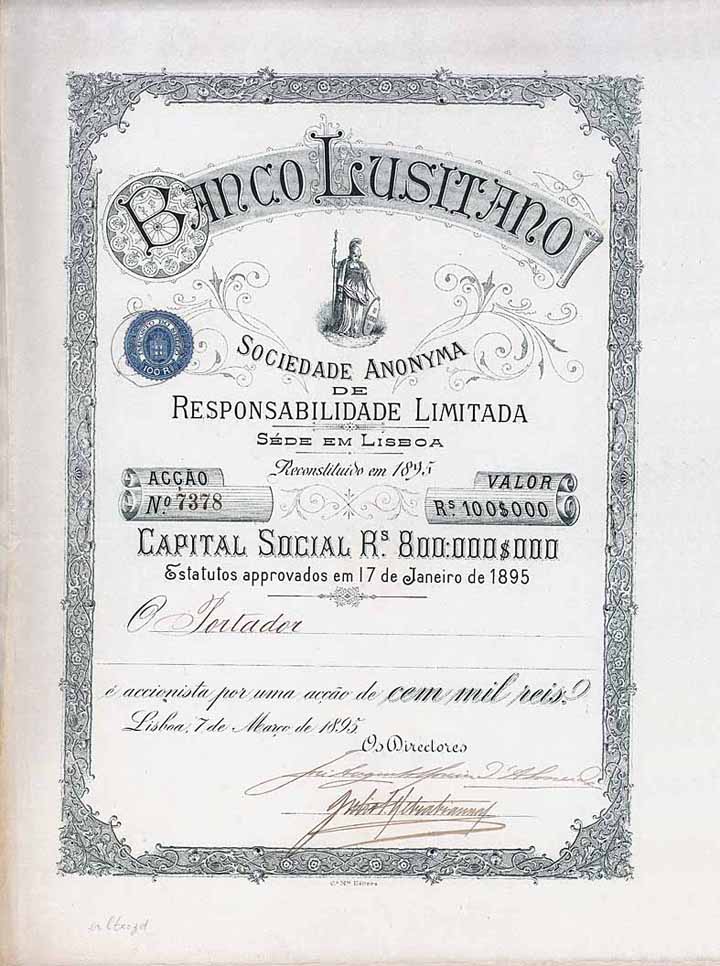 BANCO LUSITANO
SOCIEDADE ANONYMA
DE
RESPONSABILIDADE LIMITADA
SÉDE EM LISBOA
Reconstituido em 1895
ACÇÃO
Nº 7378
VALOR
Rs 100$000
100 RS
CAPITAL SOCIAL Rs 800:000$000
Estatutos approvados em 17 de Janeiro de 1895
O Portador
é accionista por uma acção de cem mil reis.
Lisboa, 7 de Março de 1895
Os Directores